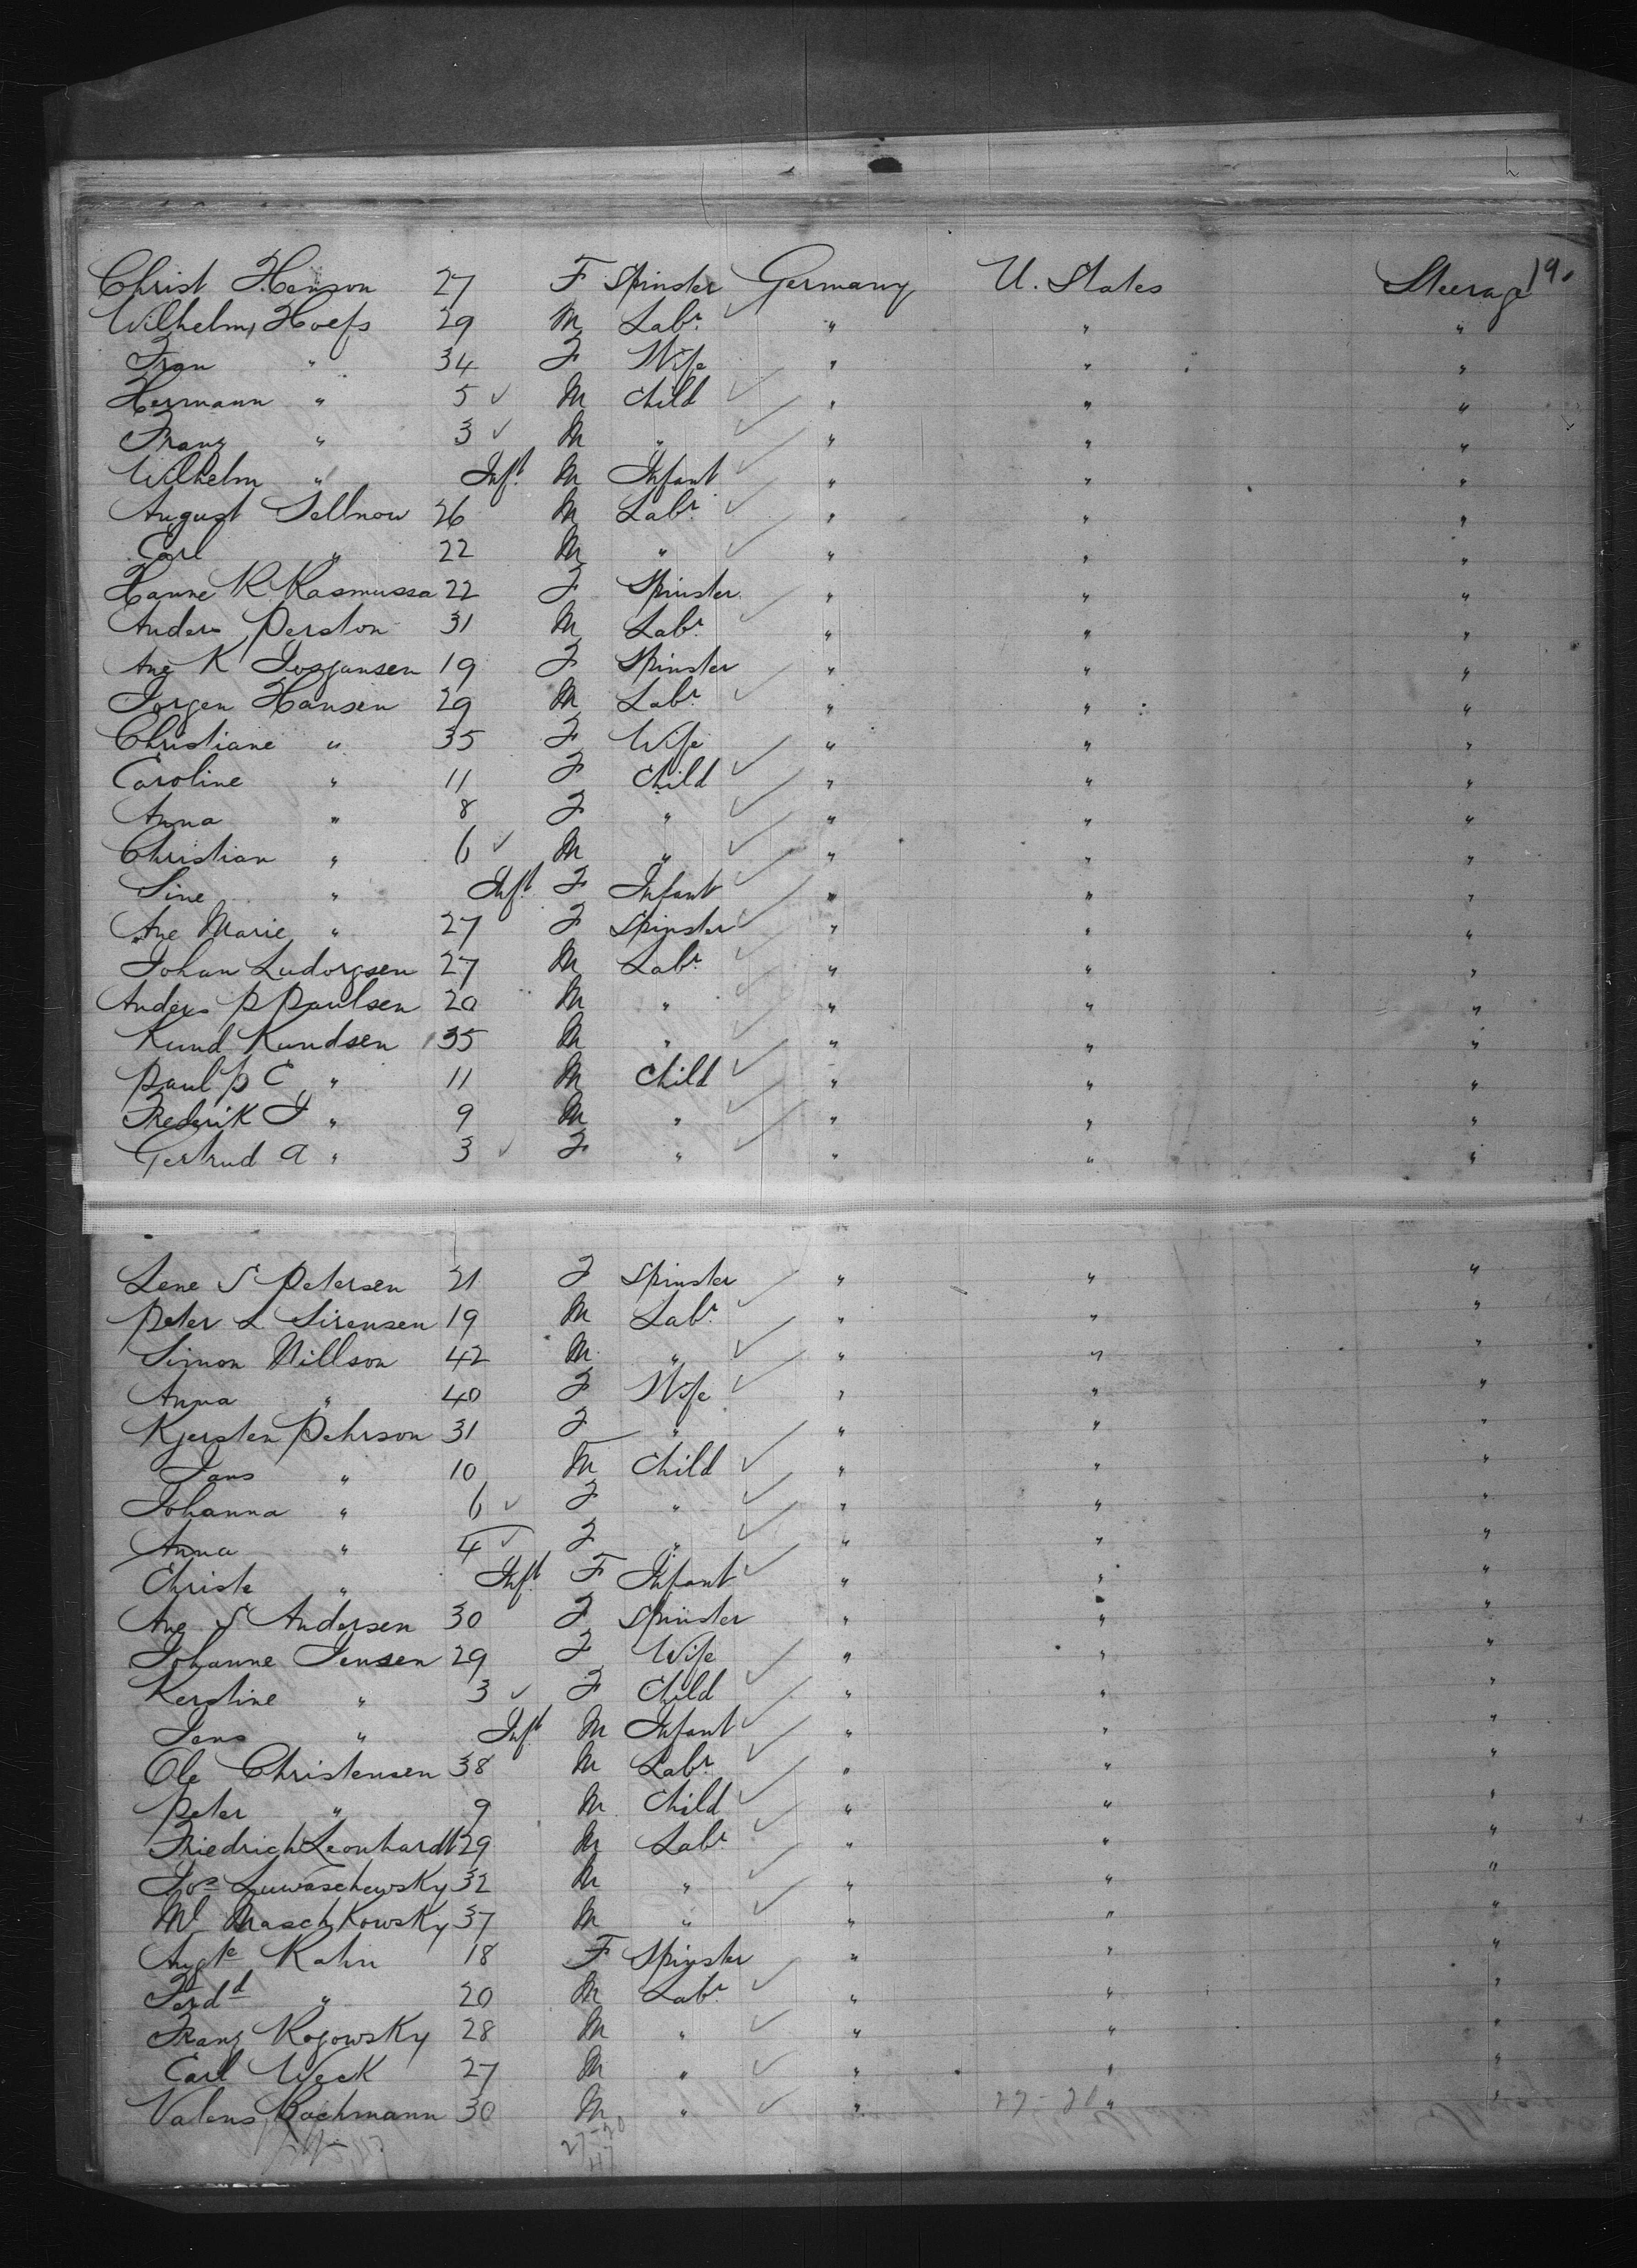 19.
Christ Henson 27 F Spinster Germany U. States Steerage
Wilhelm Hoefs 29 M Labr. " " "
Fran " 34 F Wife " " "
Hermann " 5 ✓ M Child " " "
Franz " 3 ✓ M " " " "
Wilhelm " Inft. M Infant " " "
August Sellnow 26 M Labr. " " "
Carl " 22 M " " " "
Hanne K. Rasmussa 22 F Spinster " " "
Anders Perston 31 M Labr. " " "
Ane K Josgansen 19 F Spinster " " "
Jorgen Hansen 29 M Labr. " " "
Christiane " 35 F Wife " " "
Caroline " 11 F Child " " "
Anna " 8 F " " " "
Christian " 6 ✓ M " " " "
Sine " Inft. F Infant " " "
Ane Marie " 27 F Spinster " " "
Johan Ludorgsen 27 M Labr. " " "
Anders P Paulsen 20 M " " " "
Kund Kundsen 35 M " " " "
Paul P C " 11 M Child " " "
Frederik J " 9 M " " " "
Gertrud A " 3 ✓ F " " " "
Lene S Petersen 21 F Spinster " " "
Peter L Sirensen 19 M Labr. " " "
Simon Nillson 42 M " " " "
Anna " 40 F Wife " " "
Kjersten Pehrson 31 F " " " "
Jans " 10 M Child " " "
Johanna " 6 ✓ F " " " "
Anna " 4 ✓ F " " " "
Christe " Inft. F Infant " " "
Ane S Andersen 30 F Spinster " " "
Johanne Jensen 29 F Wife " " "
Kerstine " 3 ✓ F Child " " "
Jens " Inft M Infant " " "
Ole Christensen 38 M Labr. " " "
Peter " 9 M Child " " "
Friedrich Leonhardt 29 M Labr. " " "
Jos Luwaschewsky 32 M " " " "
Ml Maschkowsky 37 M " " " "
Augte Kahn 18 F Spinster " " "
Ferdd " 20 M Labr. " " "
Franz Rogowsky 28 M " " " "
Carl Weck 27 M " " " "
Valens Bachmann 30 M " " 27-20 " "
27-20
47